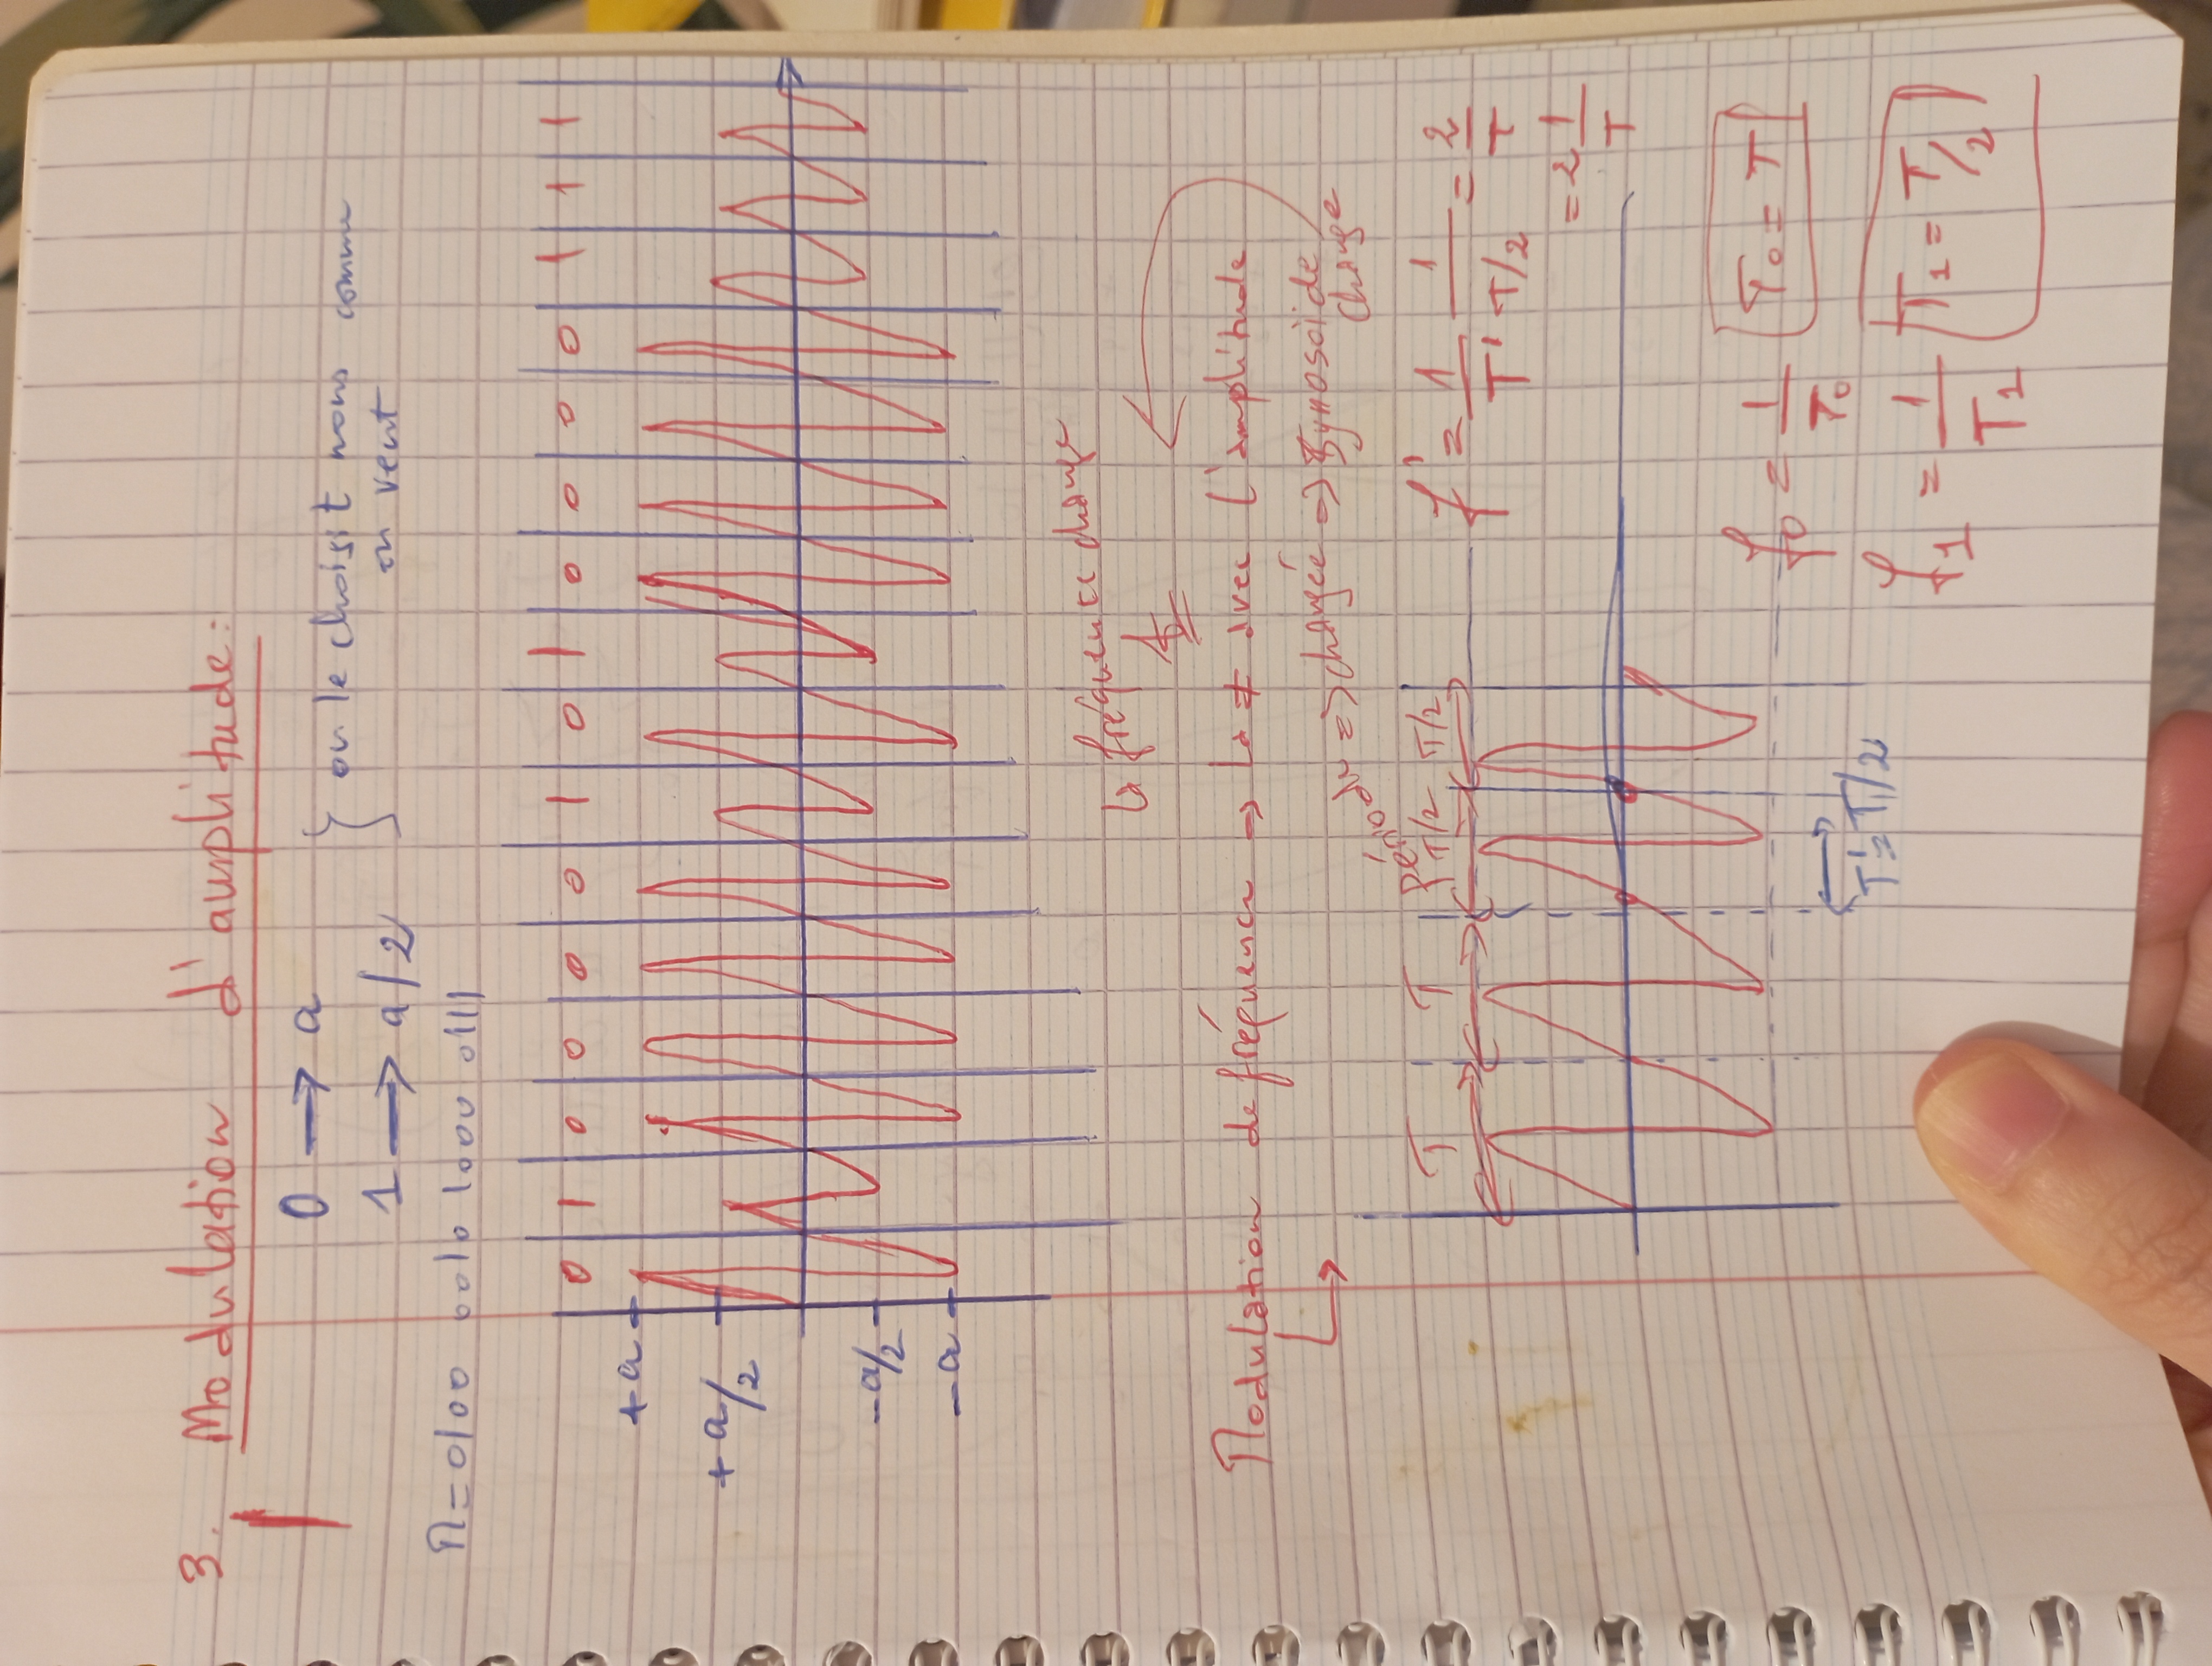 3. Modulation d'amplitude:
0 → a
1 → a/2
} on le choisit nous comme
on veut
M=0100 0010 1000 0111
0 1 0 0 0 0 1 0 1 0 0 0 0 1 1 1
+a
+a/2
-a/2
-a
↳ fréquence change
Modulation de fréquence → la ≠ avec l'amplitude
période => changée => Synosoïde
change
T T T/2 T/2
f' = 1/T' 1/T/2 = 2/T
= 2 1/T
T' = T/2
f0 = 1/T0 T0 = T
f1 = 1/T1 T1 = T/2